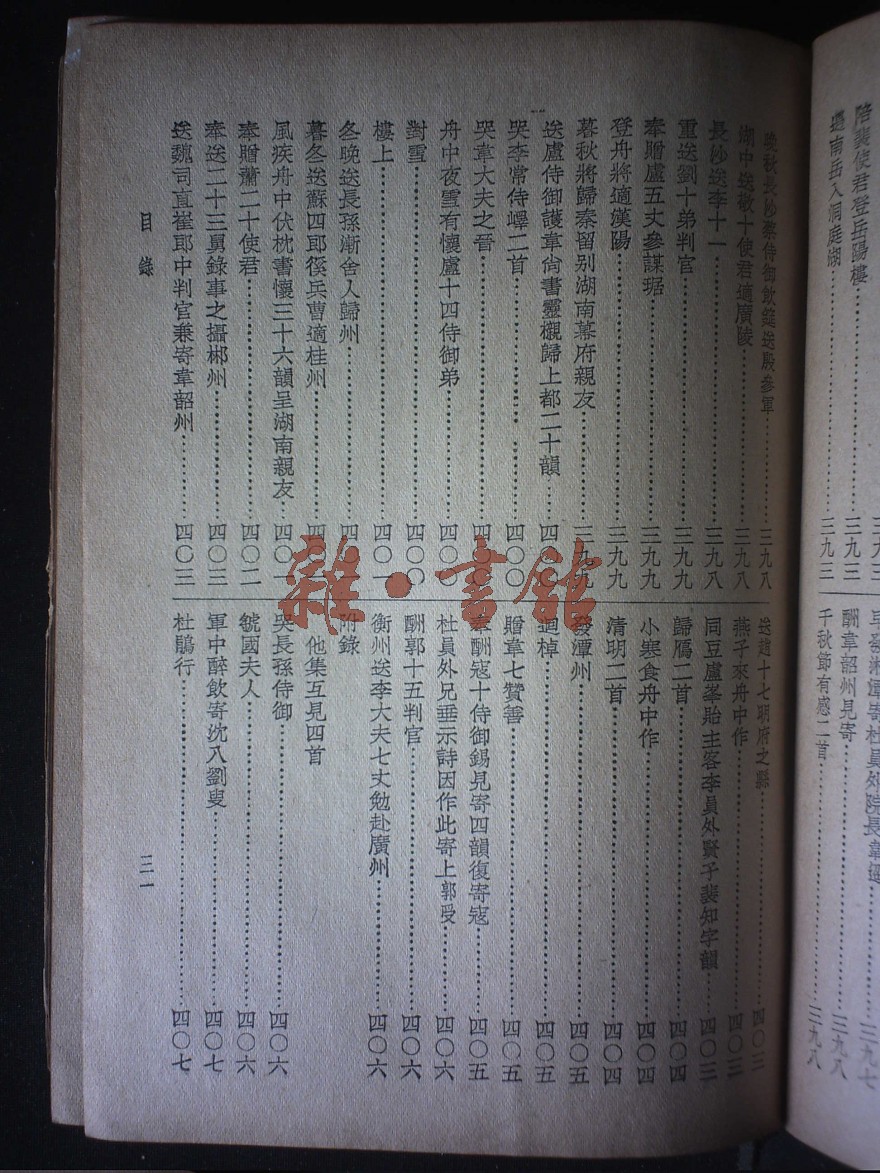 陪裴使君登岳陽樓……三九三
過南岳入洞庭湖……三九三
酬韋韶州見寄……三九八
千秋節有感二首……三九八
晚秋長沙蔡侍御飲筵送殷參軍……三九八
湖中送敬十使君適廣陵……三九八
長沙送李十一……三九八
重送劉十弟判官……三九九
奉贈盧五丈參謀琚……三九九
登舟將適漢陽……三九九
暮秋將歸秦留別湖南幕府親友……三九九
送盧侍御護韋尚書靈櫬歸上都二十韻……四〇〇
哭李常侍嶧二首……四〇〇
哭韋大夫之晉……四〇〇
舟中夜雪有懷盧十四侍御弟……四〇〇
對雪……四〇〇
樓上……四〇一
冬晚送長孫漸舍人歸州……四〇
暮冬送蘇四郎徯兵曹適桂州……四〇
風疾舟中伏枕書懷三十六韻呈湖南親友……四〇一
奉贈蕭二十使君……四〇二
奉送二十三舅錄事之攝郴州……四〇三
送魏司直崔郎中判官兼寄韋韶州……四〇三
送趙十七明府之縣……四〇三
燕子來舟中作……四〇三
同豆盧峯貽主客李員外賢子棐知字韻……四〇三
歸鴈二首……四〇四
小寒食舟中作……四〇四
清明二首……四〇四
發潭州……四〇五
迴棹……四〇五
贈韋七贊善……四〇五
奉酬寇十侍御錫見寄四韻復寄寇……四〇五
杜員外兄垂示詩因作此寄上郭受……四〇六
酬郭十五判官……四〇六
衡州送李大夫七丈勉赴廣州……四〇六
附錄
他集互見四首
哭長孫侍御……四〇六
虢國夫人……四〇六
軍中醉飲寄沈八劉叟……四〇七
杜鵑行……四〇七
目錄
三一
雜·書館